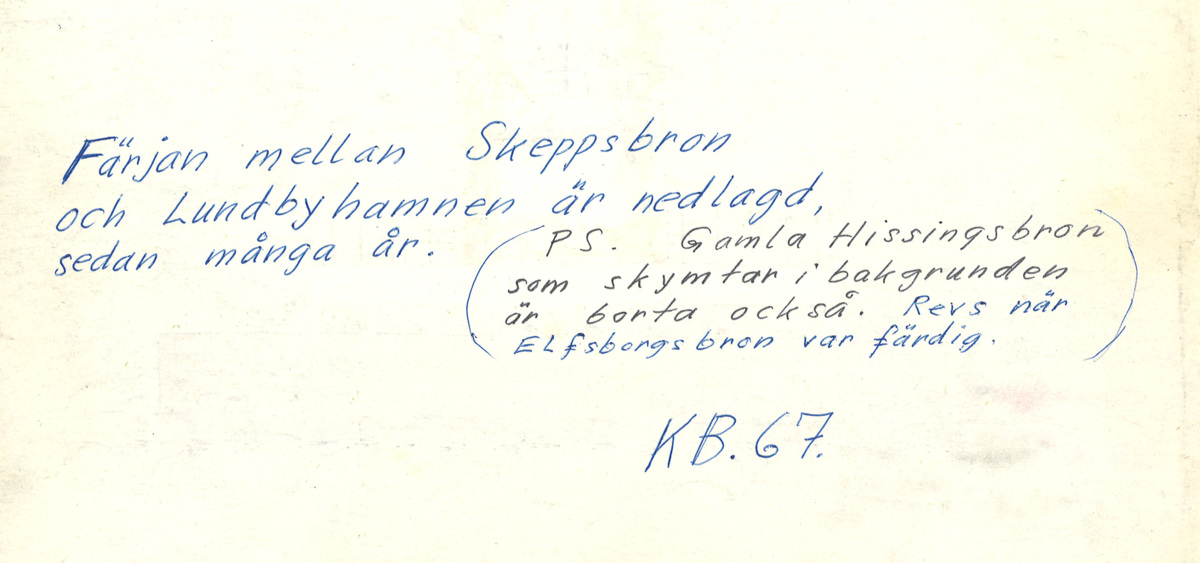 Färjan mellan Skeppsbron
och Lundbyhamnen är nedlagd,
sedan många år.
(PS. Gamla Hissingsbron
som skymtar i bakgrunden
är borta också. Revs när
Elfsborgsbron var färdig.)
KB. 67.